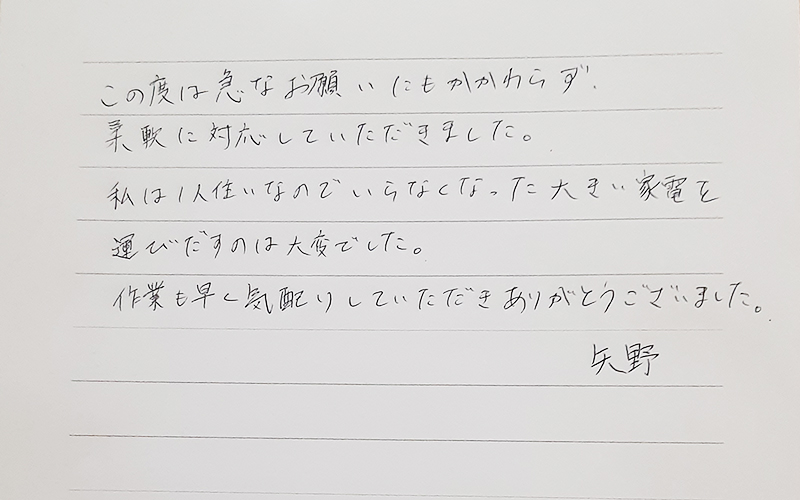 この度は急なお願いにもかかわらず、
柔軟に対応していただきました。
私は1人住いなのでいらなくなった大きい家電を
運びだすのは大変でした。
作業も早く気配りしていただきありがとうございました。
矢野